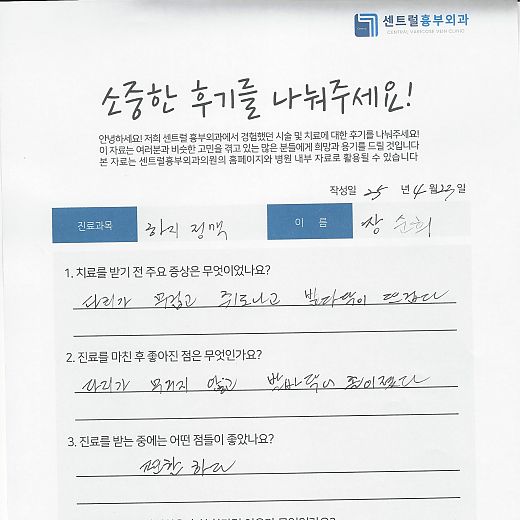 센트럴흉부외과
CENTRAL VARICOSE VEIN CLINIC
소중한 후기를 나눠주세요!
안녕하세요! 저희 센트럴 흉부외과에서 경험했던 시술 및 치료에 대한 후기를 나눠주세요!
이 자료는 여러분과 비슷한 고민을 겪고 있는 많은 분들에게 희망과 용기를 드릴 것입니다
본 자료는 센트럴흉부외과의원의 홈페이지와 병원 내부 자료로 활용될 수 있습니다
작성일 25 년 4 월 23 일
진료과목 하지 정맥 이 름 장 순희
1. 치료를 받기 전 주요 증상은 무엇이었나요?
다리가 무겁고 쥐도나고 발다닥이 뜨겁다
2. 진료를 마친 후 좋아진 점은 무엇인가요?
다리가 무겁지 않고 발바닥이
3. 진료를 받는 중에는 어떤 점들이 좋았나요?
편안 하다